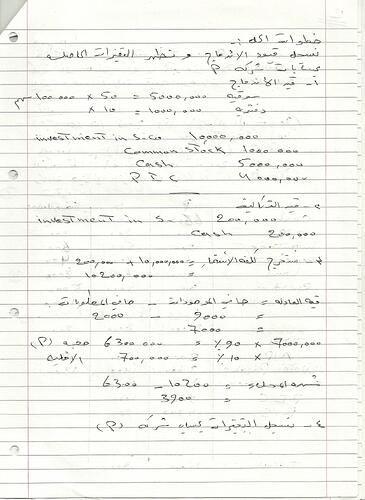 خطوات الحل :-
نسجل قيود الاندماج و تظهر التغيرات الحاصلة
بحسابات شركة P
١- قيد الاندماج
سوقية 50 × 100 000 = 5000,000 سهم
دفترية 10 × = 1000,000
investment in S-Co 10000,000
Common Stock 1000 000
Cash 5000 000
P I C 4 000,000
٢- قيد التكاليف
investment in S- 200,000
Cash 200,000
٣- نستخرج كلفة الاستثمار = 10,000,000 + 200,000
= 10200,000
قيمة العادلة = صافي الموجودات - صافي المطلوبات
9000 - 2000
= 7000
7000,000 × 90٪ = 6300 000 حصة (P)
× 10٪ = 700,000 الاقلية
شهرة المحل = 10200 - 6300
= 3900
٤- نسجل التغيرات شركة (P)